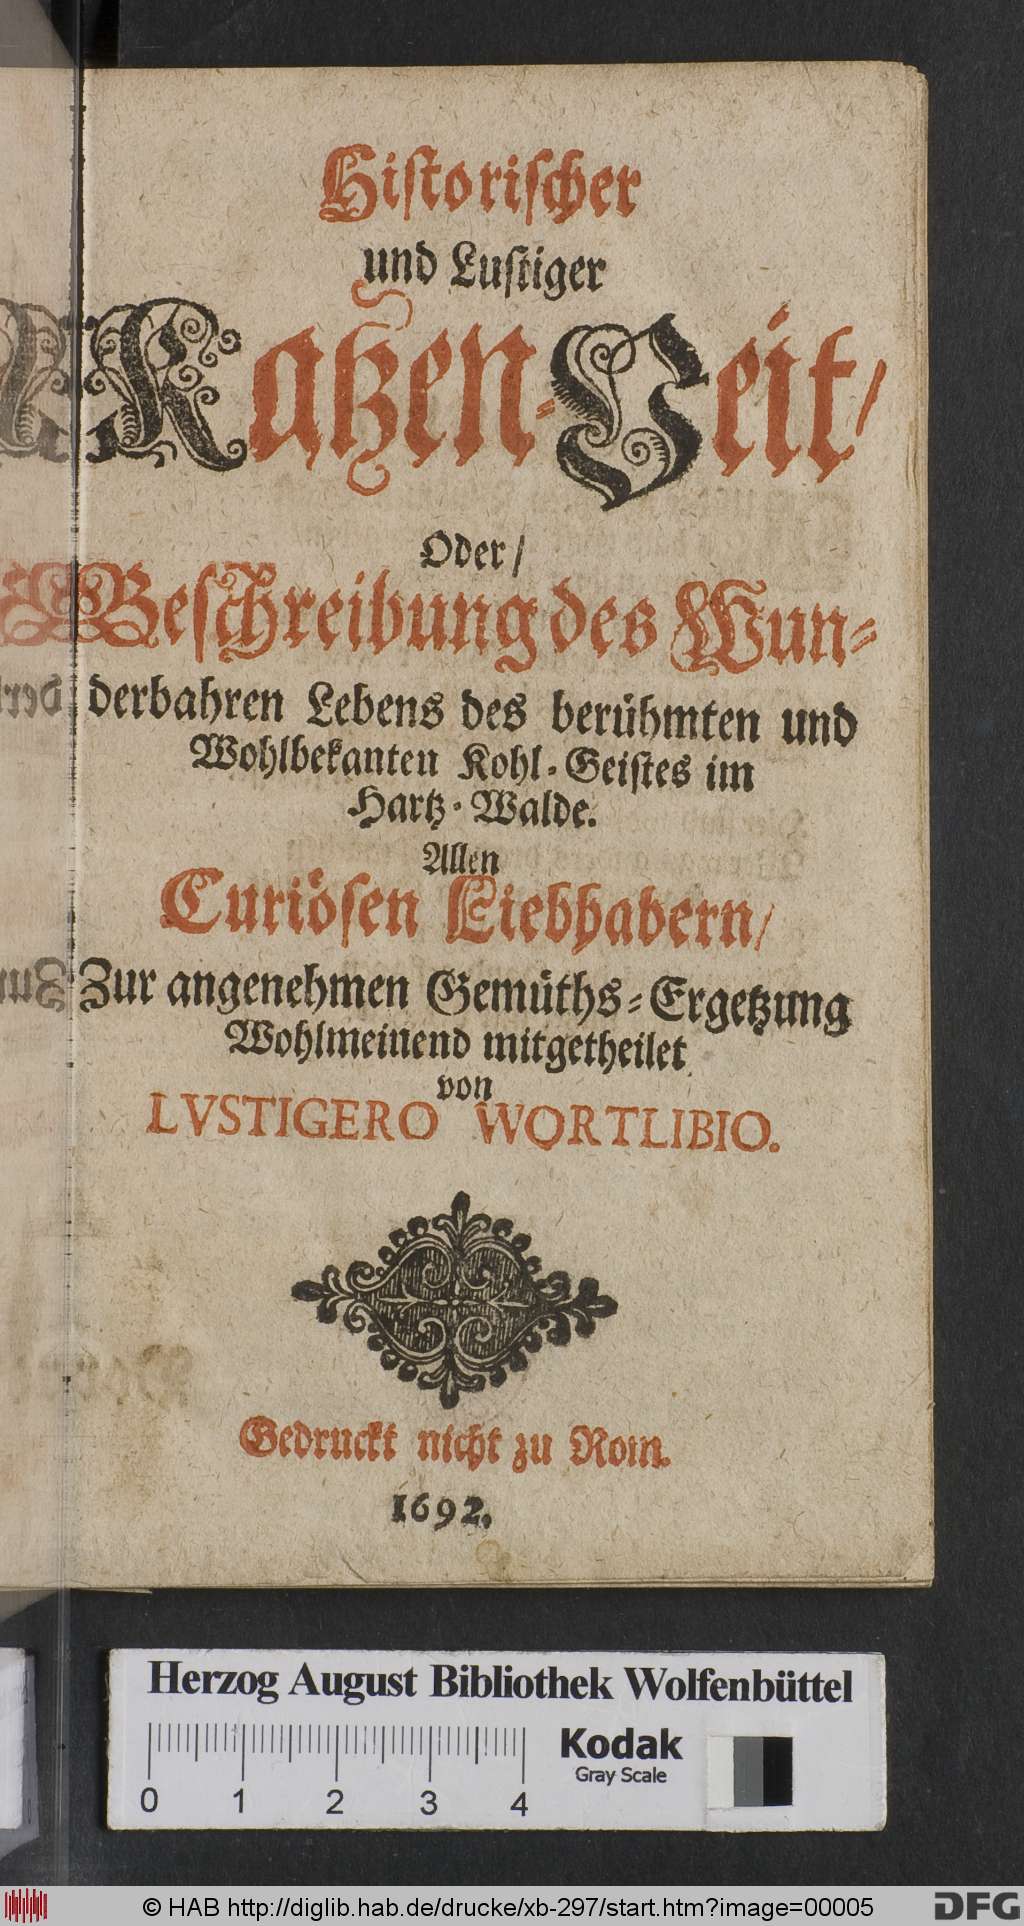 Historischer
und Lustiger
Katzen-Veit/
Oder/
Beschreibung des Wun-
derbahren Lebens des berühmten und
Wohlbekanten Kohl-Geistes im
Hartz-Walde.
Allen
Curiösen Liebhabern/
Zur angenehmen Gemüths-Ergetzung
Wohlmeinend mitgetheilet
von
LVSTIGERO WORTLIBIO.
Gedruckt nicht zu Rom.
1692.
Herzog August Bibliothek Wolfenbüttel
Kodak
Gray Scale
0 1 2 3 4
© HAB http://diglib.hab.de/drucke/xb-297/start.htm?image=00005
DFG